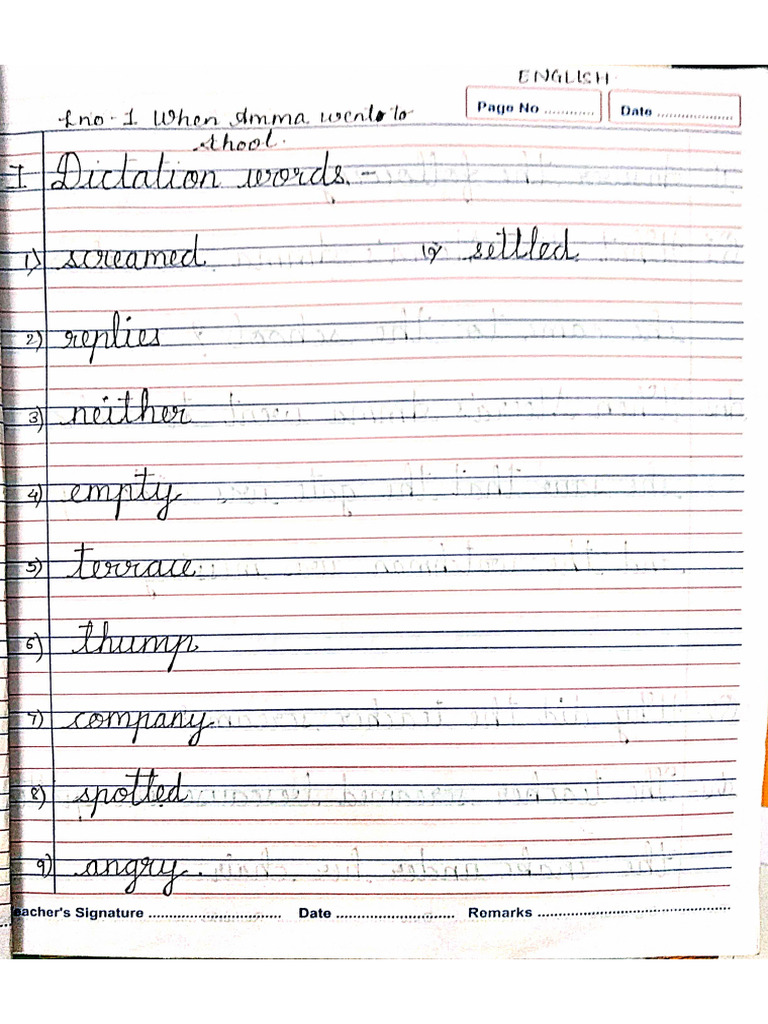 ENGLISH
Page No ............ Date ..................
Lno-1 When Amma went to
shool.
I Dictation words.-
1) screamed 10) settled
2) replies
3) neither
4) empty
5) terrace
6) thump
7) company
8) spotted
9) angry.
eacher's Signature ............................ Date ......................... Remarks ..........................................